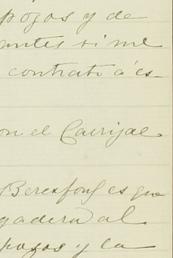 pozos y de
antes si me
contrato á es-
on el Carrizal
Beresford es que
gadera al
pozos y la